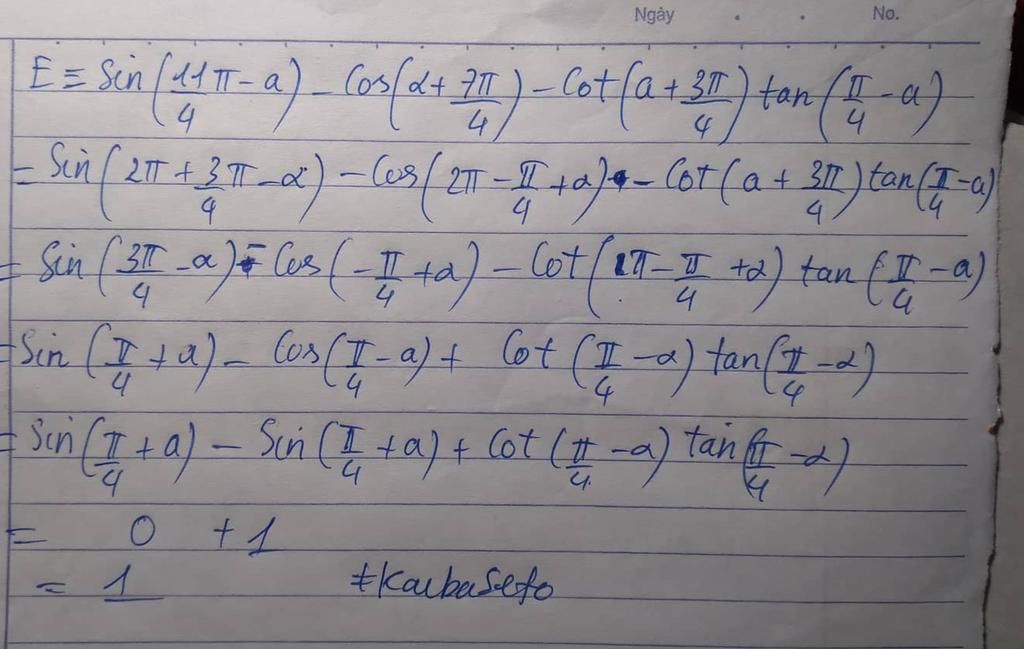 Ngày . . No.
E = Sin(11π/4 - a) - Cos(α + 7π/4) - Cot(a + 3π/4) tan(π/4 - a)
= Sin(2π + 3/4 π - α) - Cos(2π - π/4 + α) - Cot(a + 3π/4) tan(π/4 - a)
= Sin(3π/4 - a) - Cos(-π/4 + α) - Cot(π - π/4 + α) tan(π/4 - a)
= Sin(π/4 + a) - Cos(π/4 - a) + Cot(π/4 - α) tan(π/4 - α)
= Sin(π/4 + a) - Sin(π/4 + a) + Cot(π/4 - a) tan(π/4 - α)
= 0 + 1
= 1 #KaibaSeto